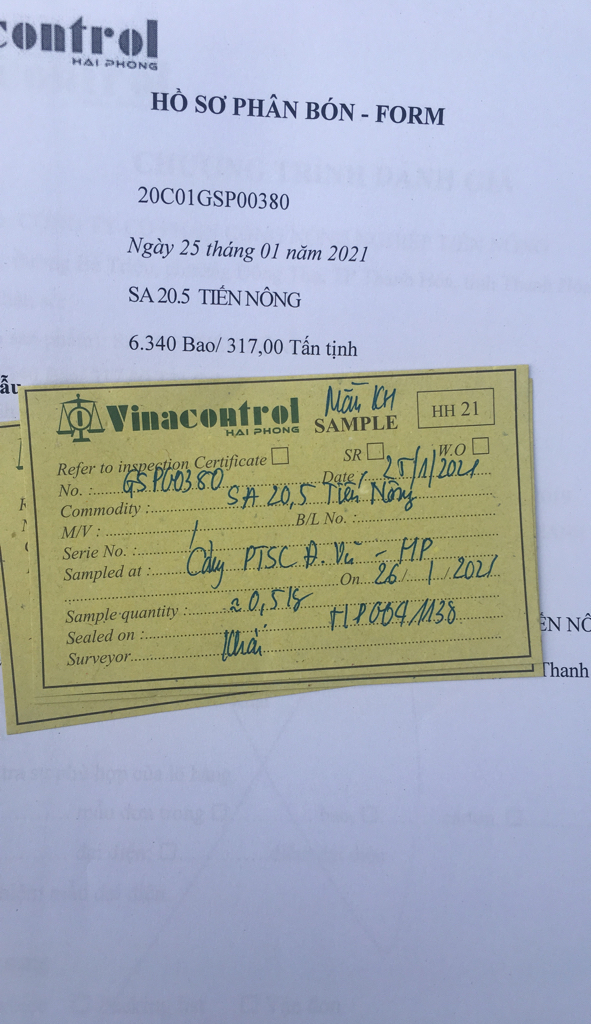 control
HAI PHONG
HỒ SƠ PHÂN BÓN - FORM
20C01GSP00380
Ngày 25 tháng 01 năm 2021
SA 20.5 TIẾN NÔNG
6.340 Bao/ 317,00 Tấn tịnh
Vinacontrol
HAI PHONG
Mẫu KH
SAMPLE
HH 21
Refer to inspection Certificate SR W.O
No. : GSP00380 Date : 25/1/2021
Commodity : SA 20,5 Tiến Nông
M/V : / B/L No. :
Serie No. :
Sampled at : Cảng PTSC Đ. Vũ - HP
On 26/1/2021
Sample quantity : ≈ 0,5 kg
Sealed on : HP0041138
Surveyor Khải
ẾN NÔ
Thanh